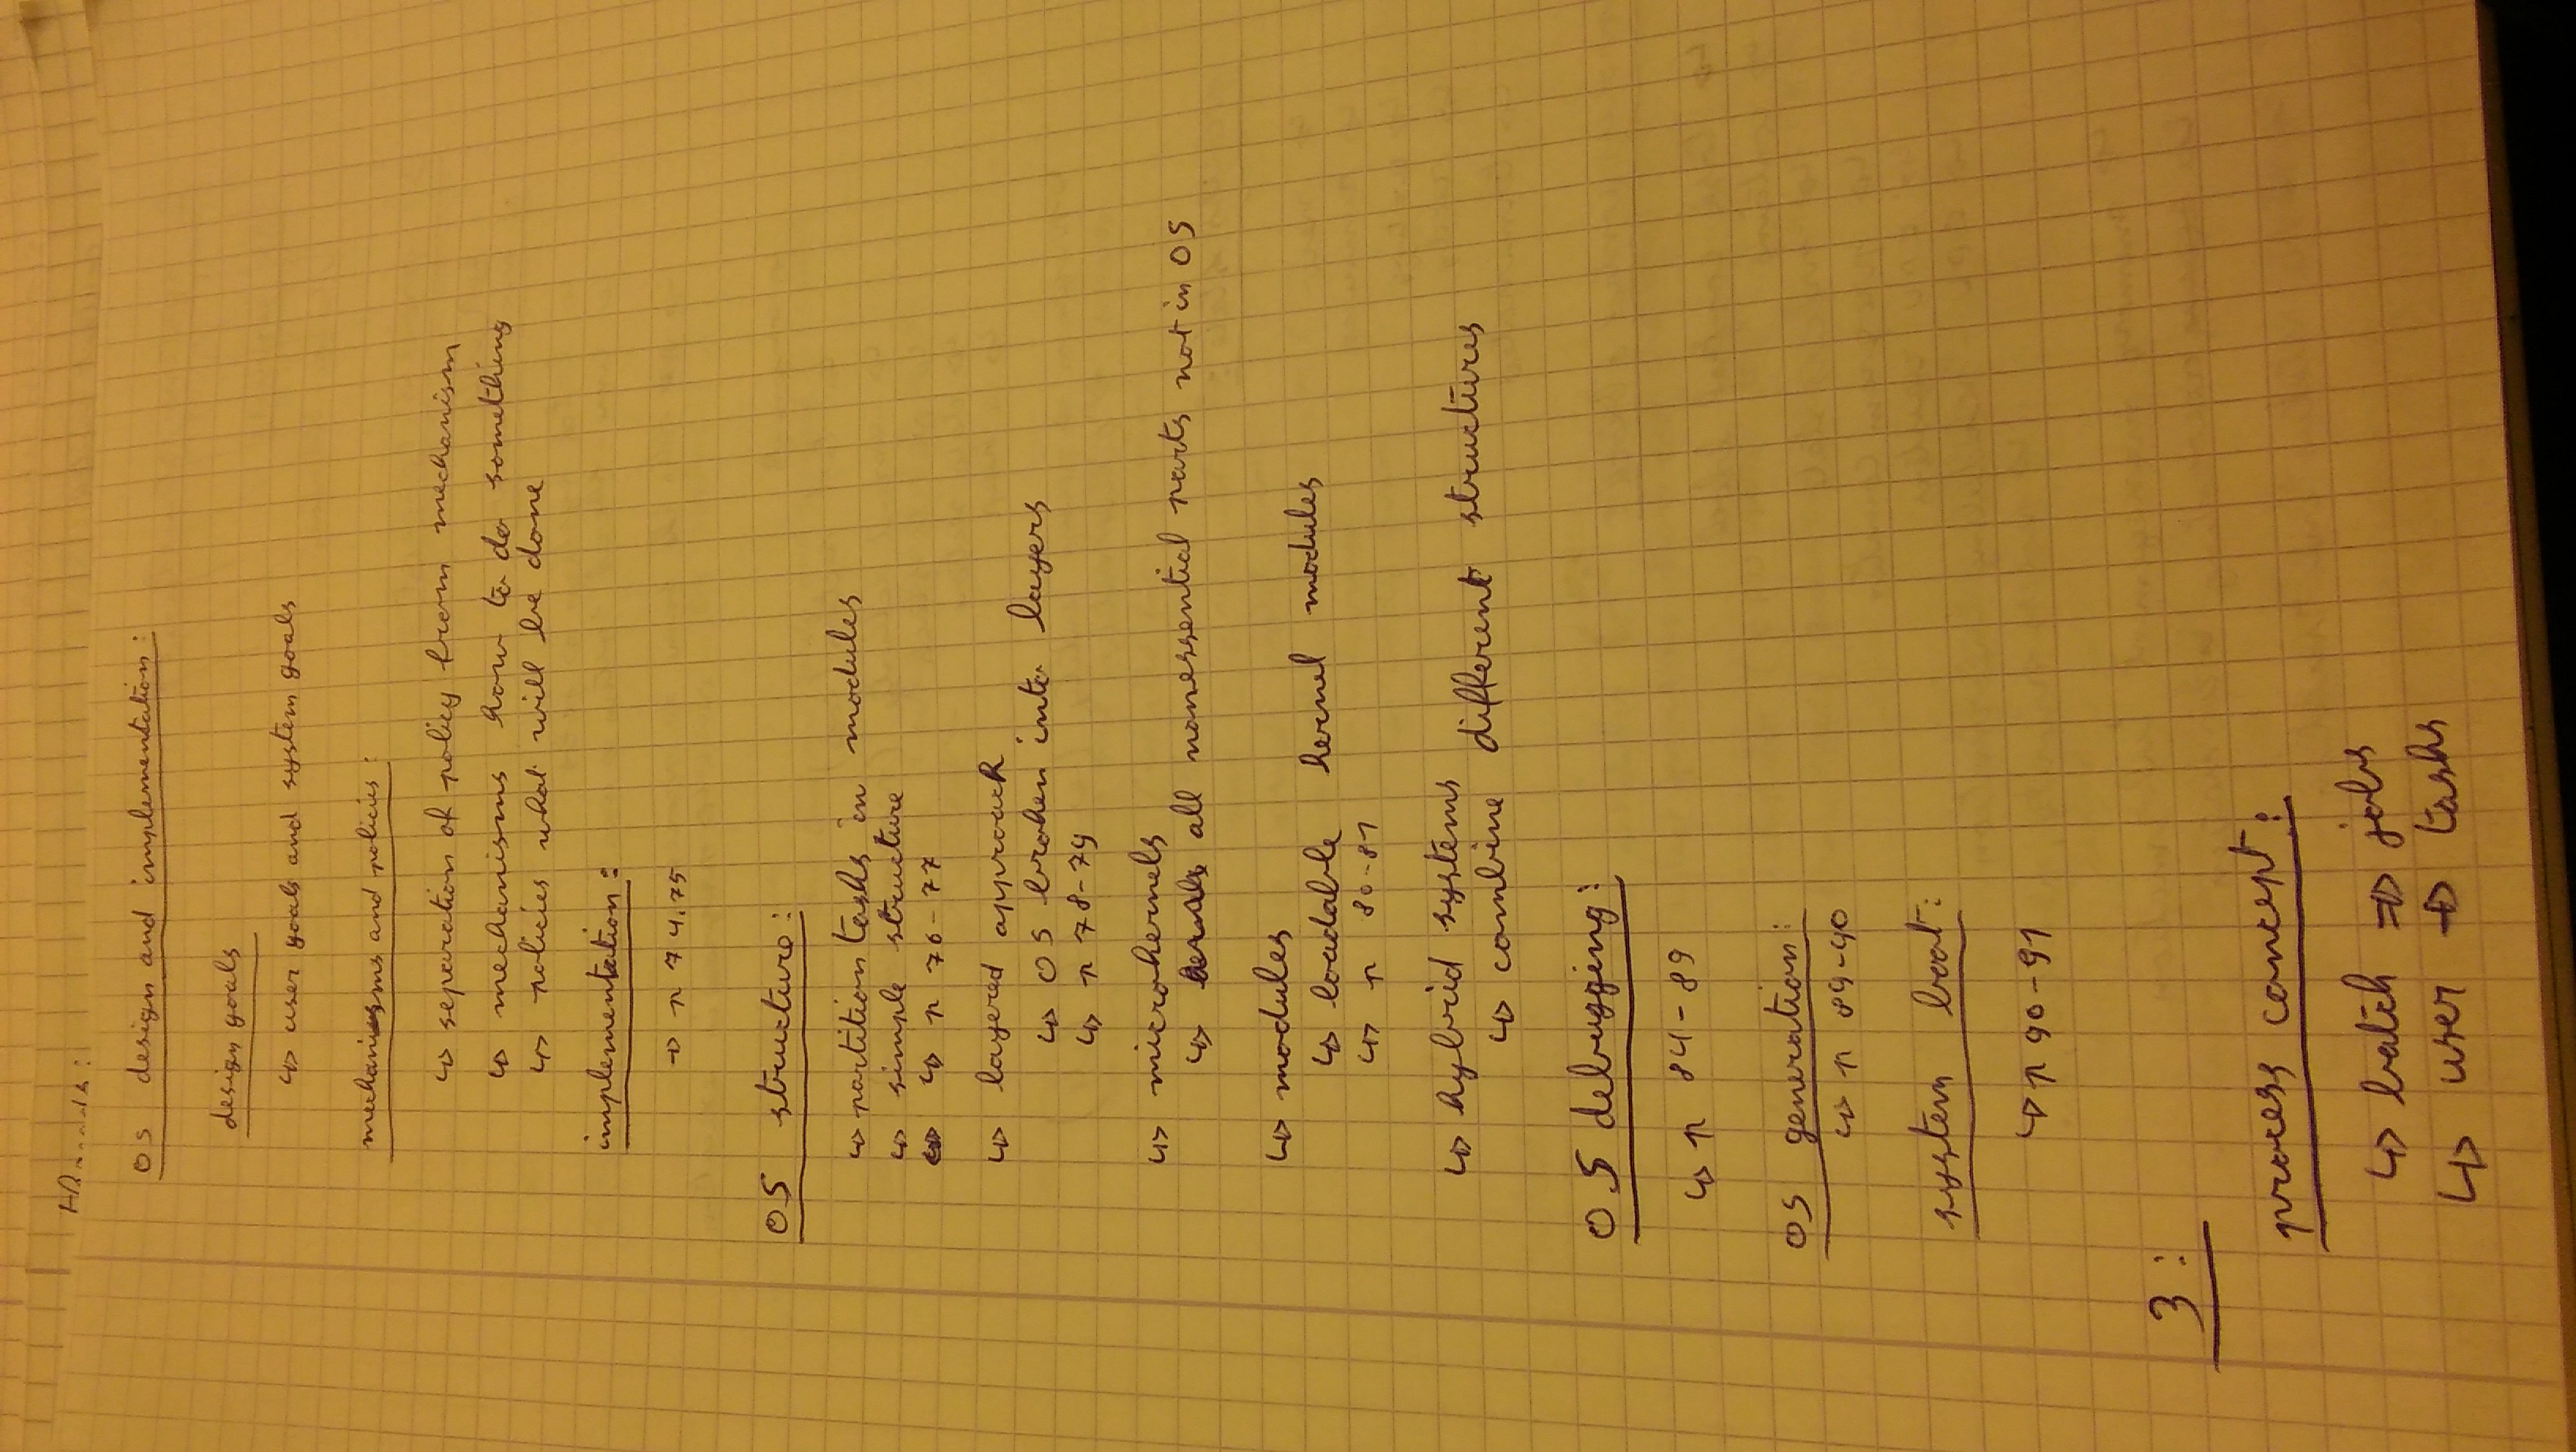 Threads:
OS design and implementation:
design goals
↳ user goals and system goals
mechanisms and policies:
↳ separation of policy from mechanism
↳ mechanisms how to do something
↳ policies what will be done
implementation:
→ p 74.75
OS structure:
↳ partition tasks in modules
↳ simple structure
↳ p 76-77
↳ layered approach
↳ OS broken into layers
↳ p 78-79
↳ microkernels
↳ all nonessential parts not in OS
↳ modules
↳ loadable kernel modules
↳ p 80-81
↳ hybrid systems
↳ combine different structures
OS debugging:
↳ p 84-89
OS generation:
↳ p 89-90
system boot:
↳ p 90-91
3:
process concept:
↳ batch ⇒ jobs
↳ user → tasks